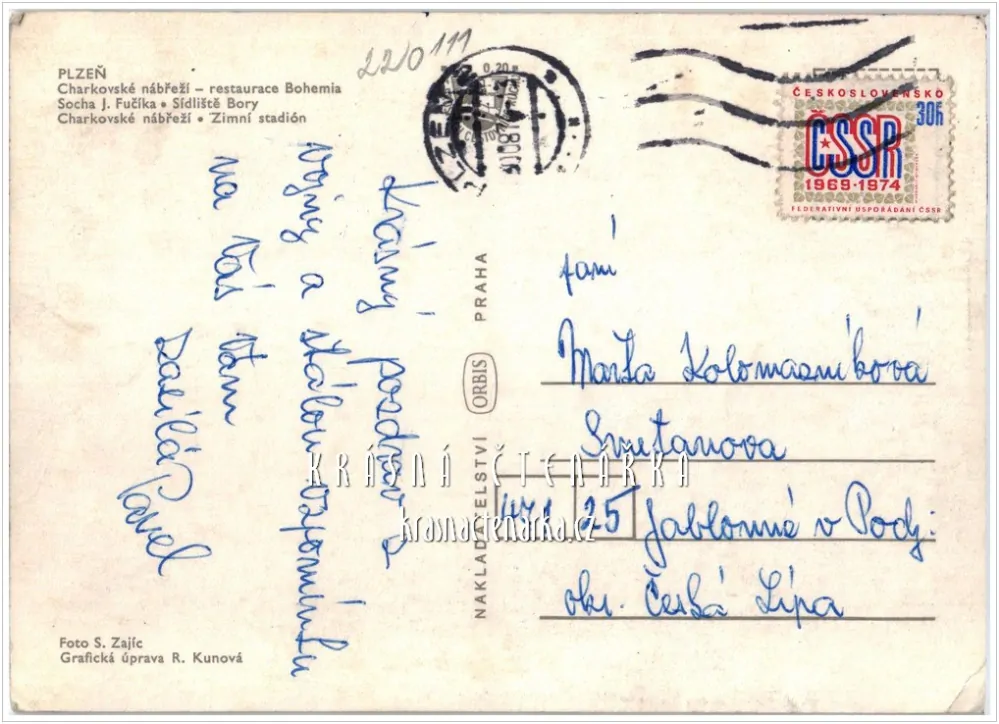 22/0 111
PLZEŇ
Charkovské nábřeží – restaurace Bohemia
Socha J. Fučíka • Sídliště Bory
Charkovské nábřeží • Zimní stadión
PLZEŇ
0,20
ČESKOSLOVENSKO
30h
ČSSR
1969·1974
FEDERATIVNÍ USPOŘÁDÁNÍ ČSSR
Krásný pozdrav z
vojny a stálou vzpomínku
na Vás Vám
zasílá Pavel
NAKLADATELSTVÍ ORBIS PRAHA
paní
Marta Kolomazníková
Smetanova
471 25 Jablonné v Podj.
okr. Česká Lípa
KRÁSNÁ ČTENÁŘKA
krasnactenarka.cz
Foto S. Zajíc
Grafická úprava R. Kunová